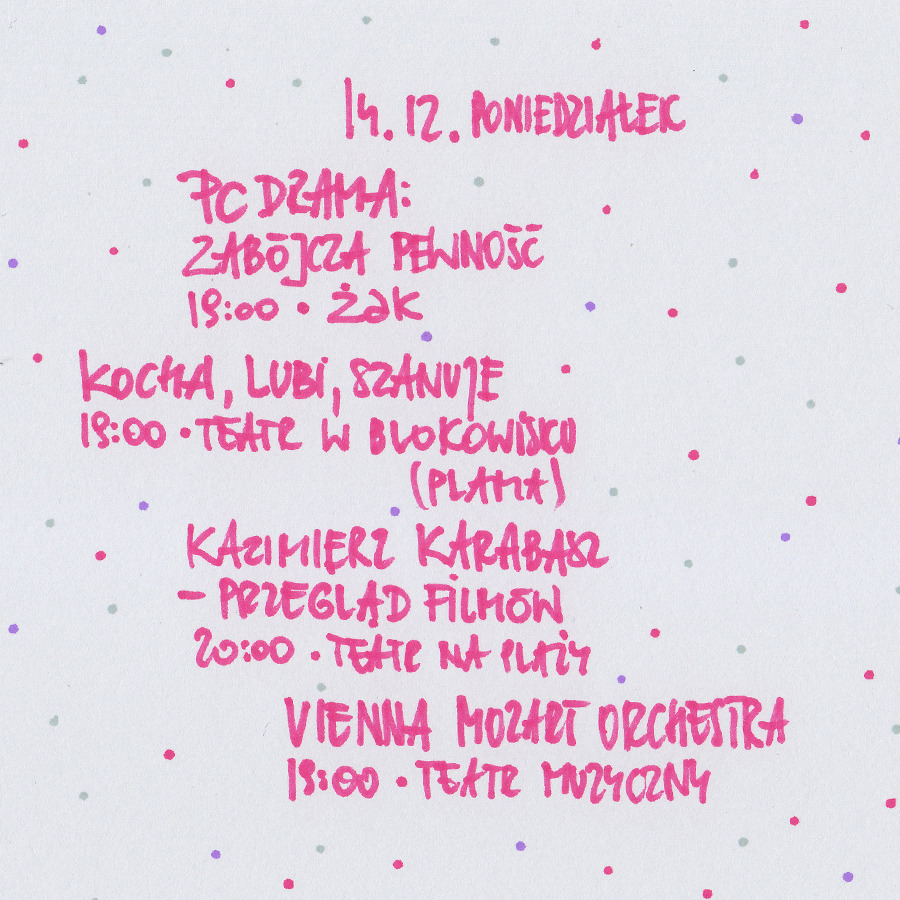 14.12. PONIEDZIAŁEK
PC DRAMA:
ZABÓJCZA PEWNOŚĆ
19:00 • ŻAK
KOCHA, LUBI, SZANUJE
19:00 • TEATR W BLOKOWISKU
(PLAMA)
KAZIMIERZ KARABASZ
– PRZEGLĄD FILMÓW
20:00 • TEATR NA PLAŻY
VIENNA MOZART ORCHESTRA
19:00 • TEATR MUZYCZNY